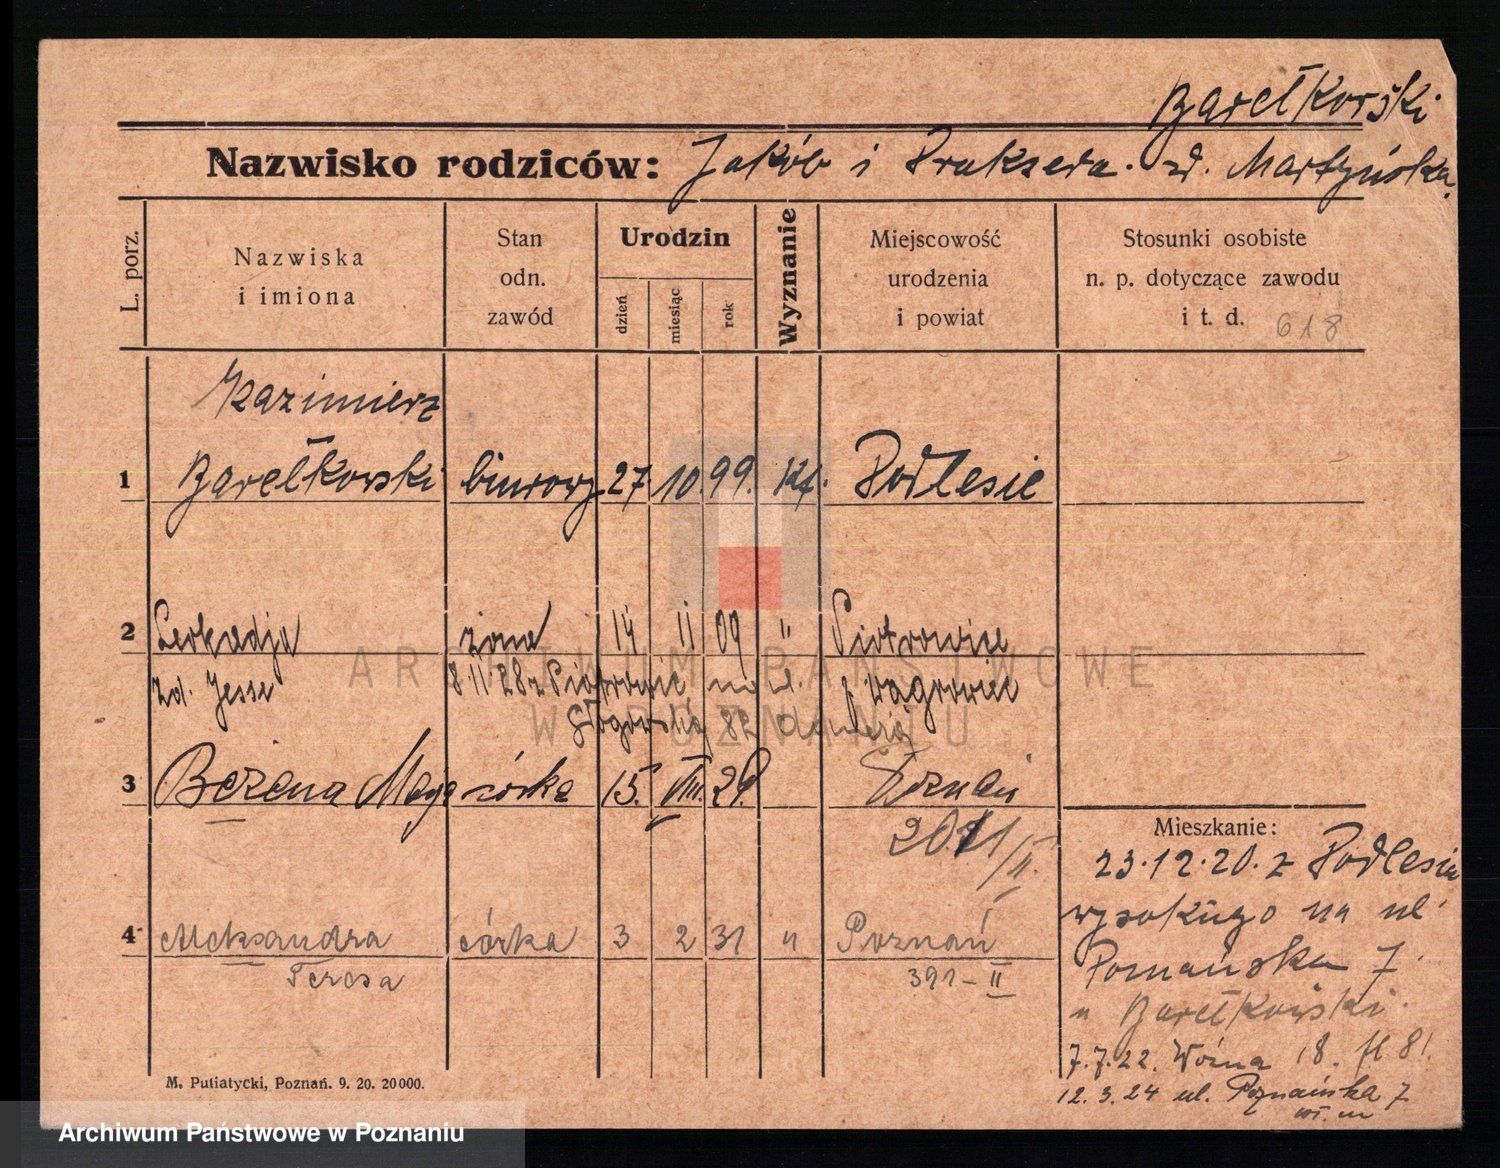 Barełkowski
Nazwisko rodziców: Jakób i Prakseda. zd. Martyńska.
L. porz.
Nazwiska i imiona
Stan odn. zawód
Urodzin
dzień
miesiąc
rok
Wyznanie
Miejscowość urodzenia i powiat
Stosunki osobiste n. p. dotyczące zawodu i t. d. 618
Kazimierz
1 Barełkowski biurowy 27. 10. 99. kt. Podlesie
2 Leokadja żona 14 11 09 " Piotrowice
zd. Jesse 8.11.28 z Piotrowic p. Wągrowiec
Głogowska 82
3 Bożena Maya córka 15. VIII. 29. Poznań
2011/II.
4 Aleksandra córka 3 2 31 " Poznań
Teresa 391-II
Mieszkanie:
23.12.20. z Podlesia
wysokiego na ul.
Poznańska 7.
u Barełkowski.
7.7.22. Woźna 18. fl 81.
12.3.24 ul. Poznańska 7
M. Putiatycki, Poznań. 9. 20. 20000.
ARCHIWUM PAŃSTWOWE
W POZNANIU
Archiwum Państwowe w Poznaniu